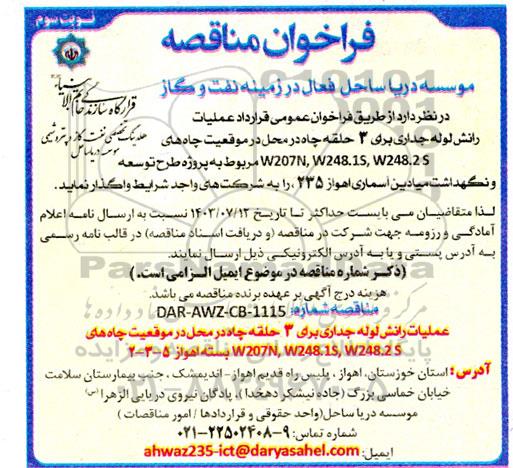 نوبت سوم
فراخوان مناقصه
قرارگاه سازندگی خاتم الانبیاء
هلدینگ تخصصی نفت، گاز و پتروشیمی
موسسه دریا ساحل
موسسه دریا ساحل فعال در زمینه نفت و گاز
در نظر دارد از طریق فراخوان عمومی قرارداد عملیات
رانش لوله جداری برای ۳ حلقه چاه در محل در موقعیت چاه های
W207N, W248.1S, W248.2 S مربوط به پروژه طرح توسعه
و نگهداشت میادین آسماری اهواز ۲۳۵، را به شرکت های واجد شرایط واگذار نماید.
لذا متقاضیان می بایست حداکثر تا تاریخ ۱۴۰۳/۰۷/۱۲ نسبت به ارسال نامه اعلام
آمادگی و رزومه جهت شرکت در مناقصه (و دریافت اسناد مناقصه) در قالب نامه رسمی
به آدرس پستی و یا به آدرس الکترونیکی ذیل ارسال نمایند.
(ذکر شماره مناقصه در موضوع ایمیل الزامی است.)
هزینه درج آگهی بر عهده برنده مناقصه می باشد.
مناقصه شماره: DAR-AWZ-CB-1115
عملیات رانش لوله جداری برای ۳ حلقه چاه در محل در موقعیت چاه های
W207N, W248.1S, W248.2 S بسته اهواز ۵-۳-۲
آدرس: استان خوزستان، اهواز، پلیس راه قدیم اهواز-اندیمشک، جنب بیمارستان سلامت
خیابان خماسی بزرگ (جاده نیشکر دهخدا)، پادگان نیروی دریایی الزهرا (س)
موسسه دریا ساحل (واحد حقوقی و قراردادها / امور مناقصات)
شماره تماس: ۹-۲۲۵۰۲۴۰۸-۰۲۱
ایمیل: ahwaz235-ict@daryasahel.com